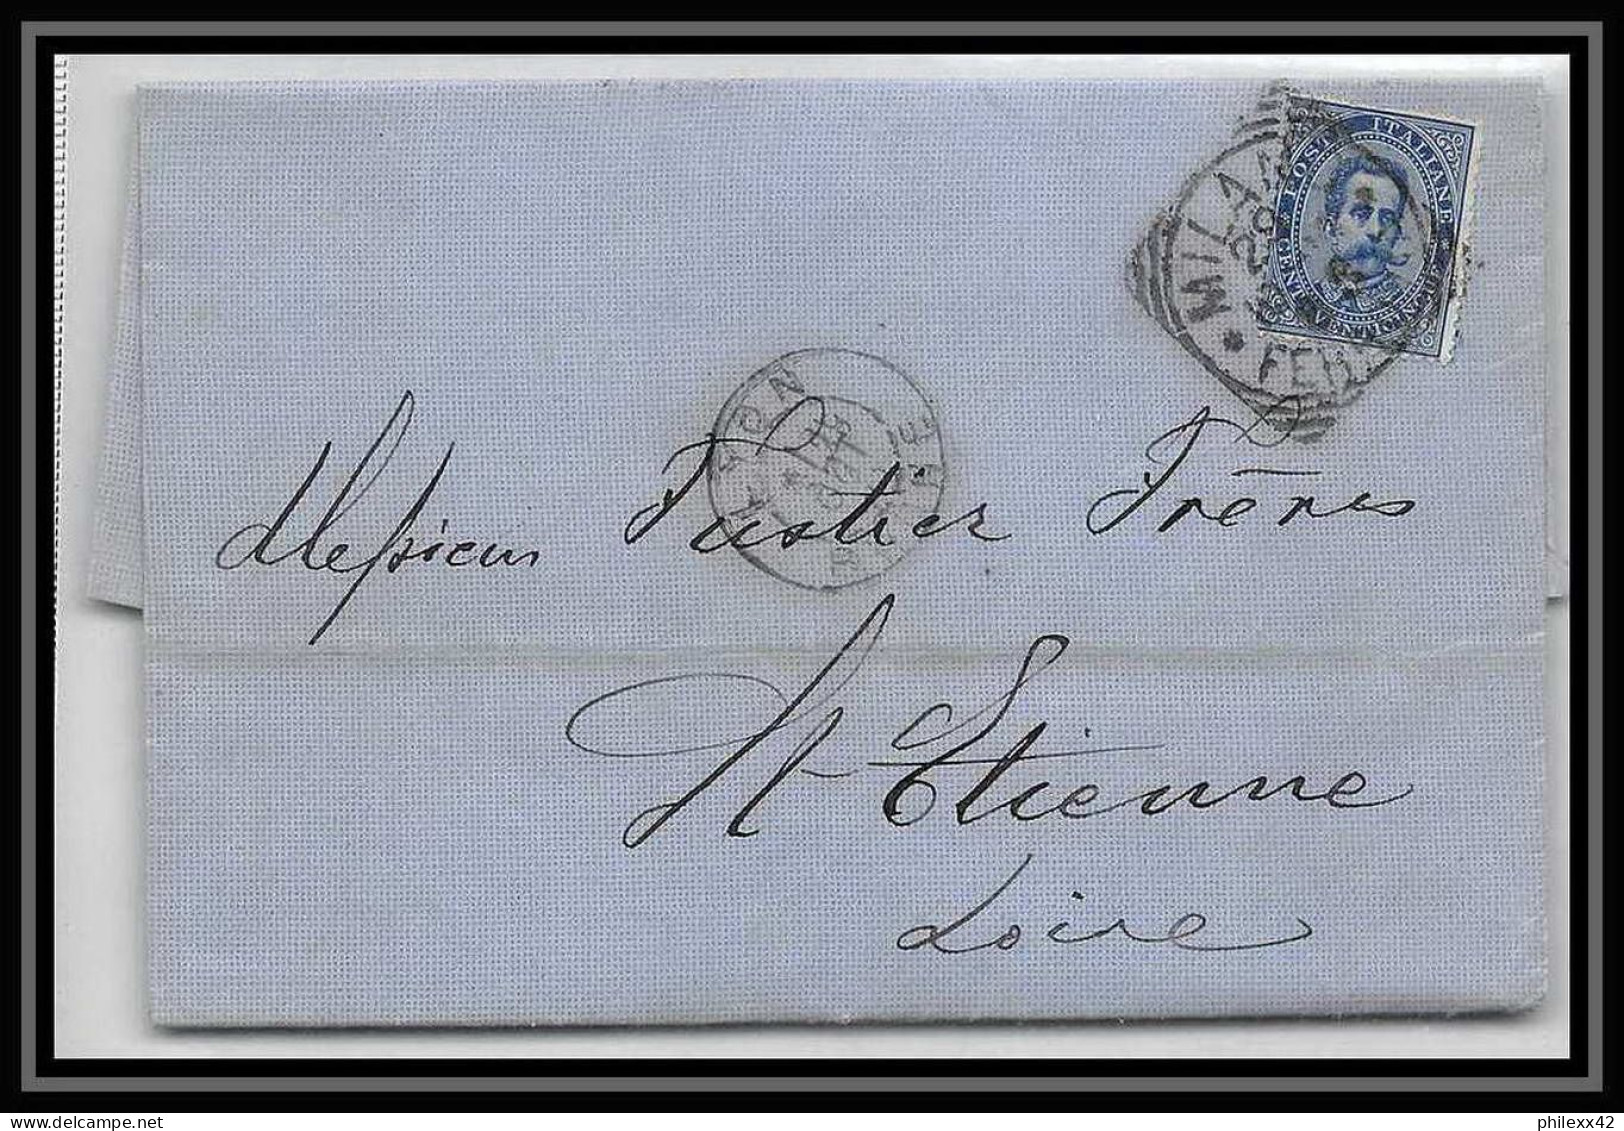 POSTE ITALIANE
CENT. VENTICINQUE
MILANO
FERR
LYON
Messieurs Fustier Frères
St Etienne
Loire
philexx42